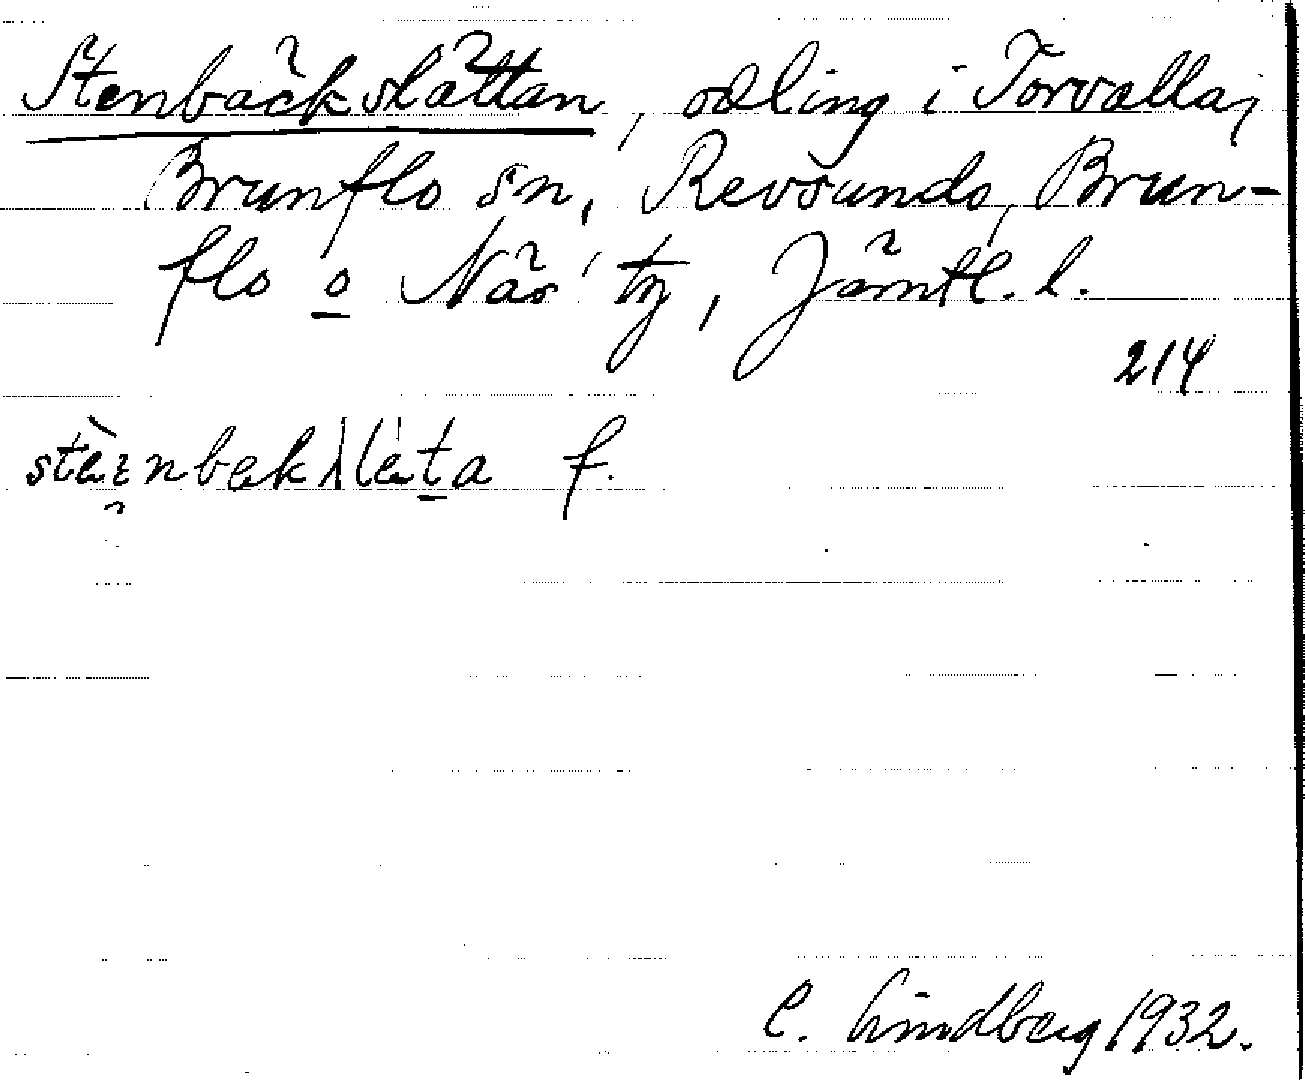 Stenbäckslättan, odling i Torvalla,
Brunflo sn, Revsunds, Brun-
flo o Näs tg, Jämtl. l.
214
f.
C. Lindberg 1932.